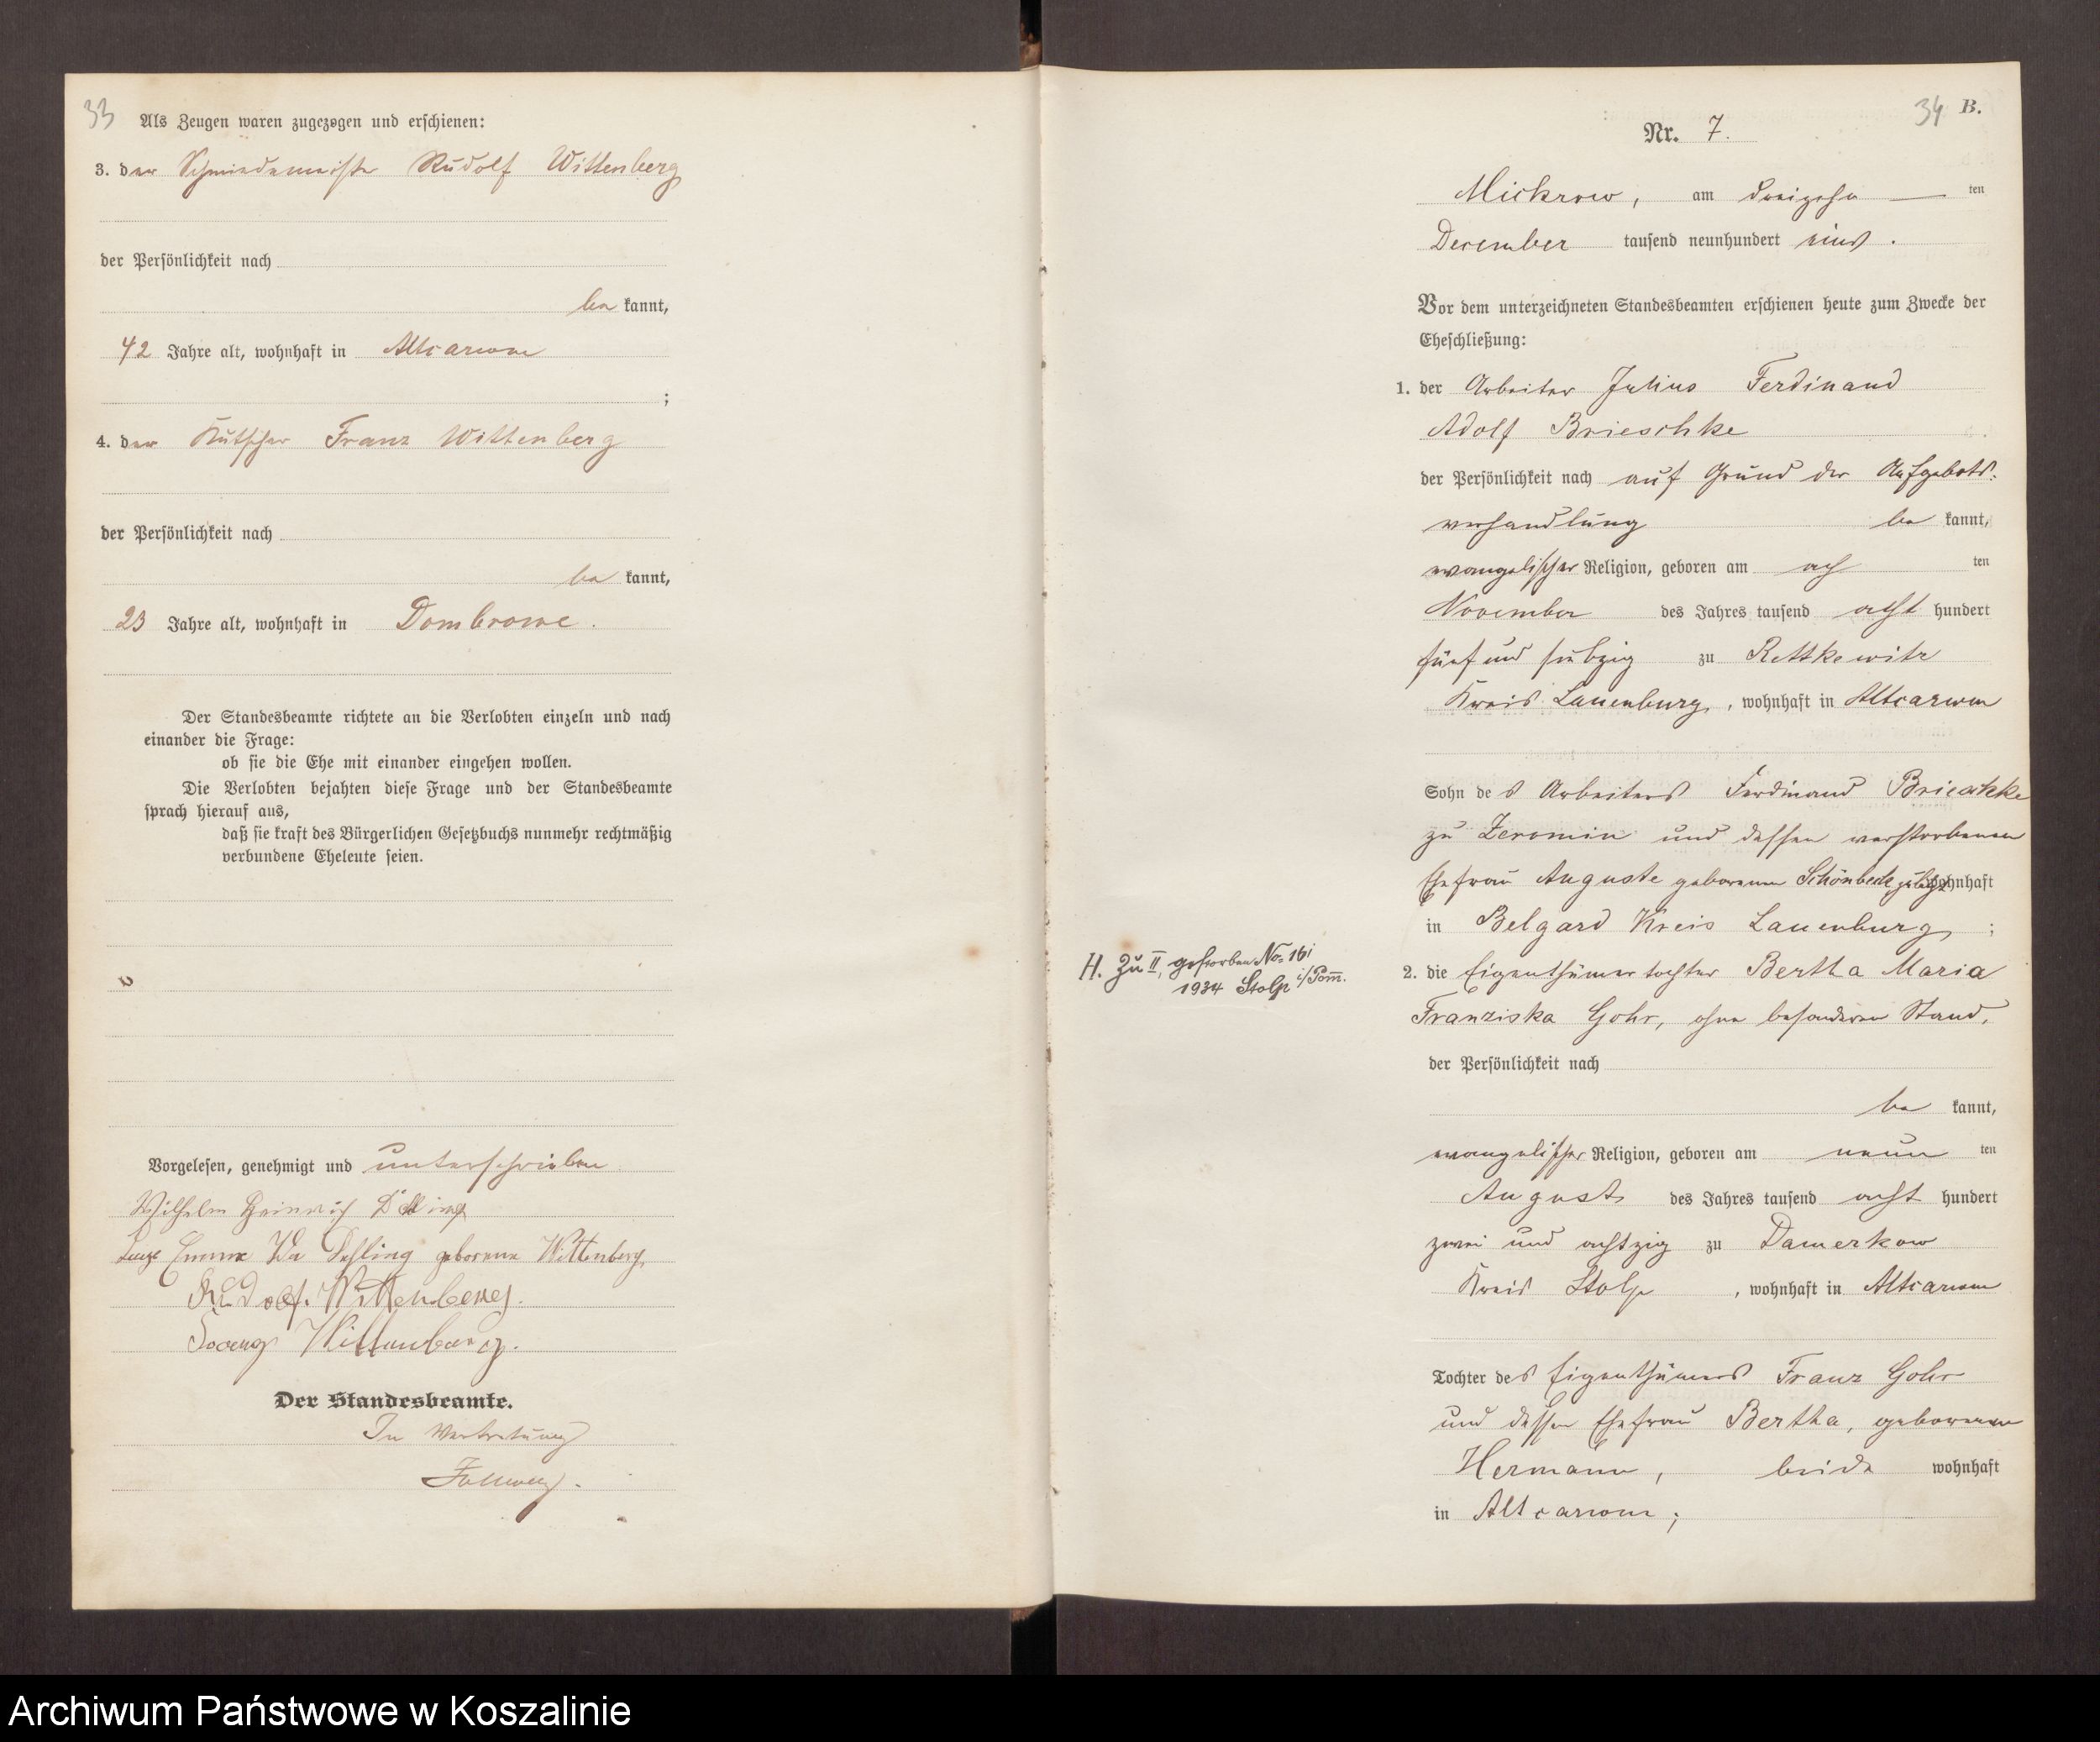 33
Als Zeugen waren zugezogen und erschienen:
3. der Schmiedemeister Rudolf Wittenberg
der Persönlichkeit nach
be kannt,
42 Jahre alt, wohnhaft in Altcarwen
;
4. der Kutscher Franz Wittenberg
der Persönlichkeit nach
be kannt,
23 Jahre alt, wohnhaft in Dombrowe.
Der Standesbeamte richtete an die Verlobten einzeln und nach
einander die Frage:
ob sie die Ehe mit einander eingehen wollen.
Die Verlobten bejahten diese Frage und der Standesbeamte
sprach hierauf aus,
daß sie kraft des Bürgerlichen Gesetzbuchs nunmehr rechtmäßig
verbundene Eheleute seien.
Vorgelesen, genehmigt und unterschrieben
Wilhelm Heinrich
Emma Ida geborene Wittenberg
Rudolf. Wittenberg.
Franz Wittenberg.
Der Standesbeamte.
In Vertretung
34 B.
Nr. 7.
Mickrow, am dreizehn ten
December tausend neunhundert eins.
Vor dem unterzeichneten Standesbeamten erschienen heute zum Zwecke der
Eheschließung:
1. der Arbeiter Julius Ferdinand
Adolf Brieschke
der Persönlichkeit nach auf Grund der Aufgebots-
verhandlung be kannt,
evangelischer Religion, geboren am ach ten
November des Jahres tausend acht hundert
fünf und siebzig zu Rettkewitz
Kreis Lauenburg, wohnhaft in Altcarwen
Sohn des Arbeiters Ferdinand Brieschke
zu Zeromin und dessen verstorbenen
Ehefrau Auguste geborenen Schönbeck zuletzt wohnhaft
in Belgard Kreis Lauenburg;
H. Zu II, gestorben No. 161
1934 Stolp i/Pom.
2. die Eigenthümertochter Bertha Maria
Franziska Gohr, ohne besonderen Stand,
der Persönlichkeit nach
be kannt,
evangelischer Religion, geboren am neun ten
August des Jahres tausend acht hundert
zwei und achtzig zu Damerkow
Kreis Stolp, wohnhaft in Altcarwen
Tochter des Eigenthümers Franz Gohr
und dessen Ehefrau Bertha, geborenen
Hermann, beide wohnhaft
in Altcarwen;
Archiwum Państwowe w Koszalinie